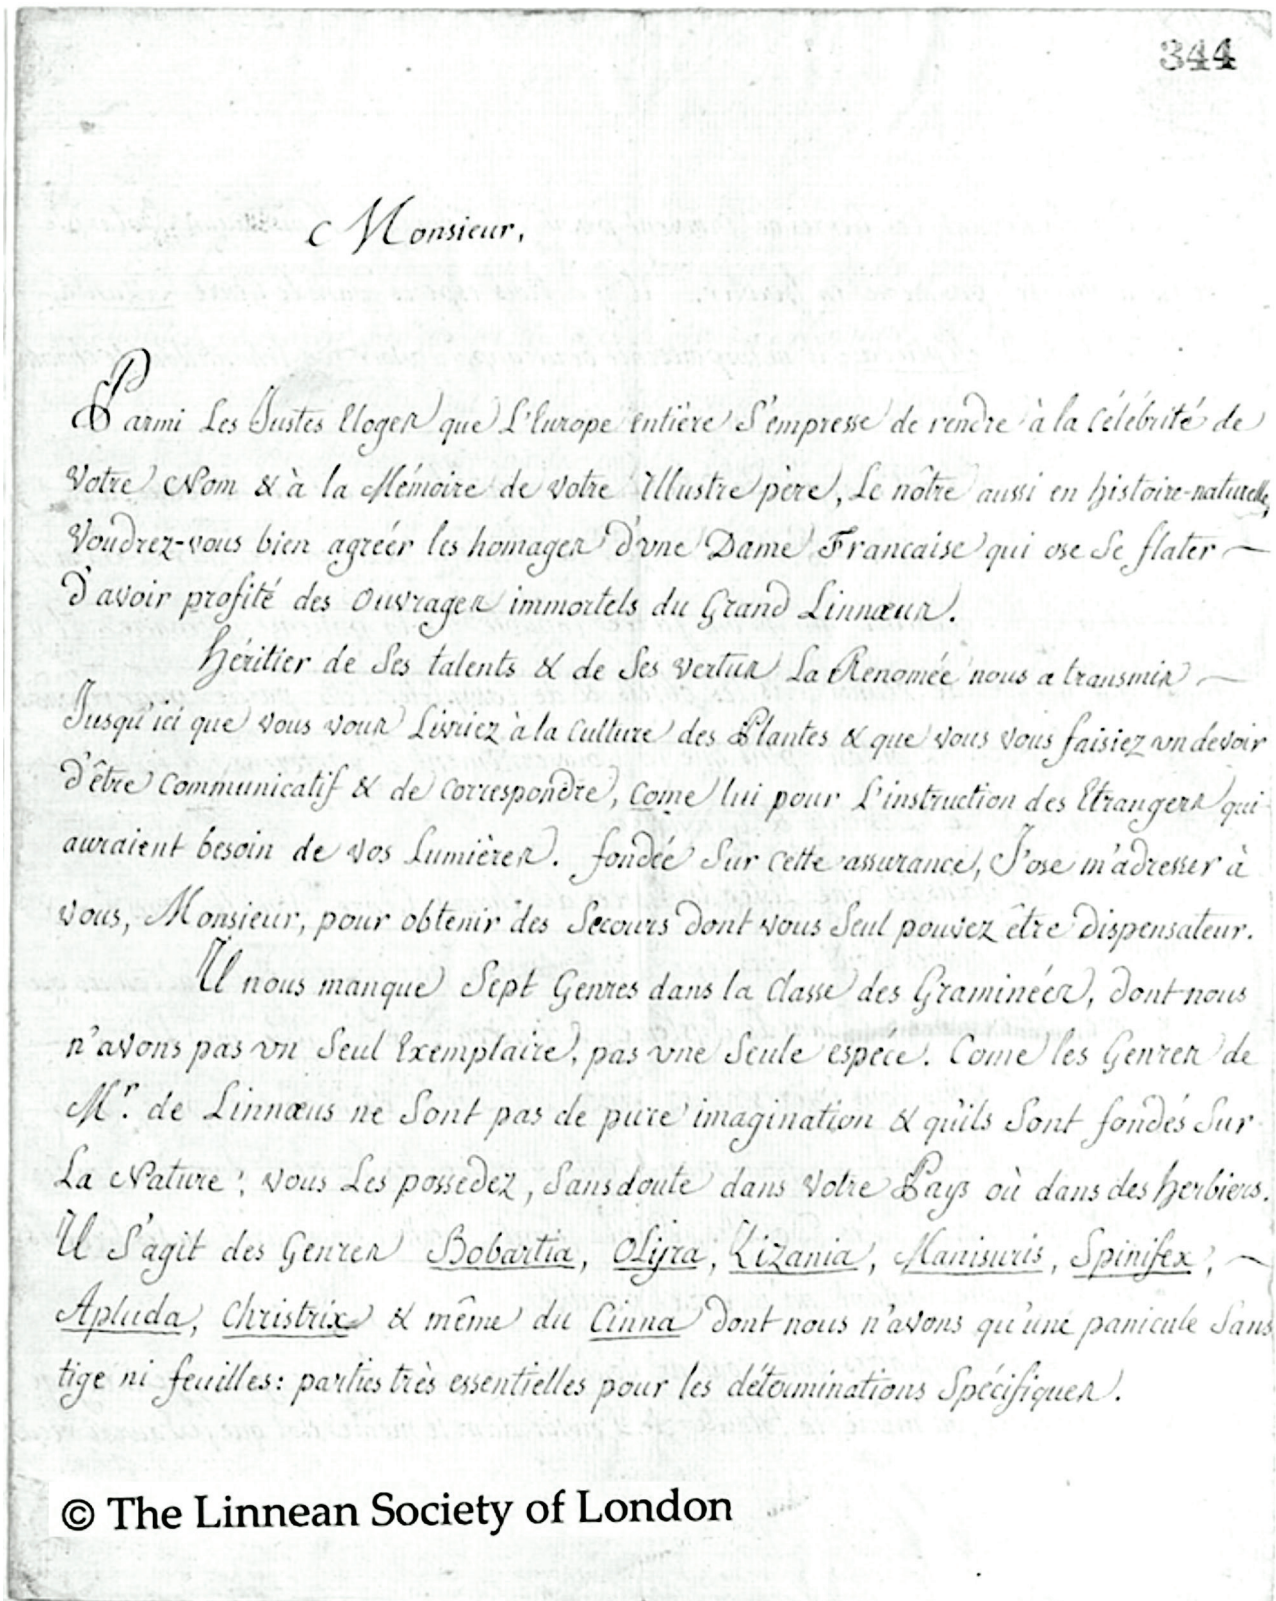 344
Monsieur,
Parmi Les Justes Eloges que L'Europe entière S'empresse de rendre à la Célébrité de
Votre Nom & à la Mémoire de votre Illustre père, Le nôtre aussi en histoire-naturelle,
Voudrez-vous bien agréér les homages d'une Dame Francaise qui ose Se flater
d'avoir profité des Ouvrages immortels du Grand Linnæus.
héritier de Ses talents & de Ses vertus La Renomée nous a transmis
Jusqu'ici que vous vous Livriez à la Culture des Plantes & que vous vous faisiez un devoir
d'être Communicatif & de Correspondre, Come lui pour L'instruction des Etrangers qui
auraient besoin de vos Lumières. fondée Sur cette assurance, J'ose m'adresser à
vous, Monsieur, pour obtenir des Secours dont vous Seul pouvez être dispensateur.
Il nous manque Sept Genres dans la Classe des Graminéés, dont nous
n'avons pas un Seul Exemplaire, pas une Seule espece. Come les Genres de
Mr. de Linnæus ne Sont pas de pure imagination & qu'ils Sont fondés Sur
La Nature; vous Les possedez, Sans doute dans Votre Pays où dans des herbiers.
Il S'agit des Genres Bobartia, OLyra, Zizania, Manisuris, Spinifex,
Apluda, Christrix & même du Cinna dont nous n'avons qu'une panicule Sans
tige ni feuilles: parties très essentielles pour les déterminations Spécifiques.
© The Linnean Society of London